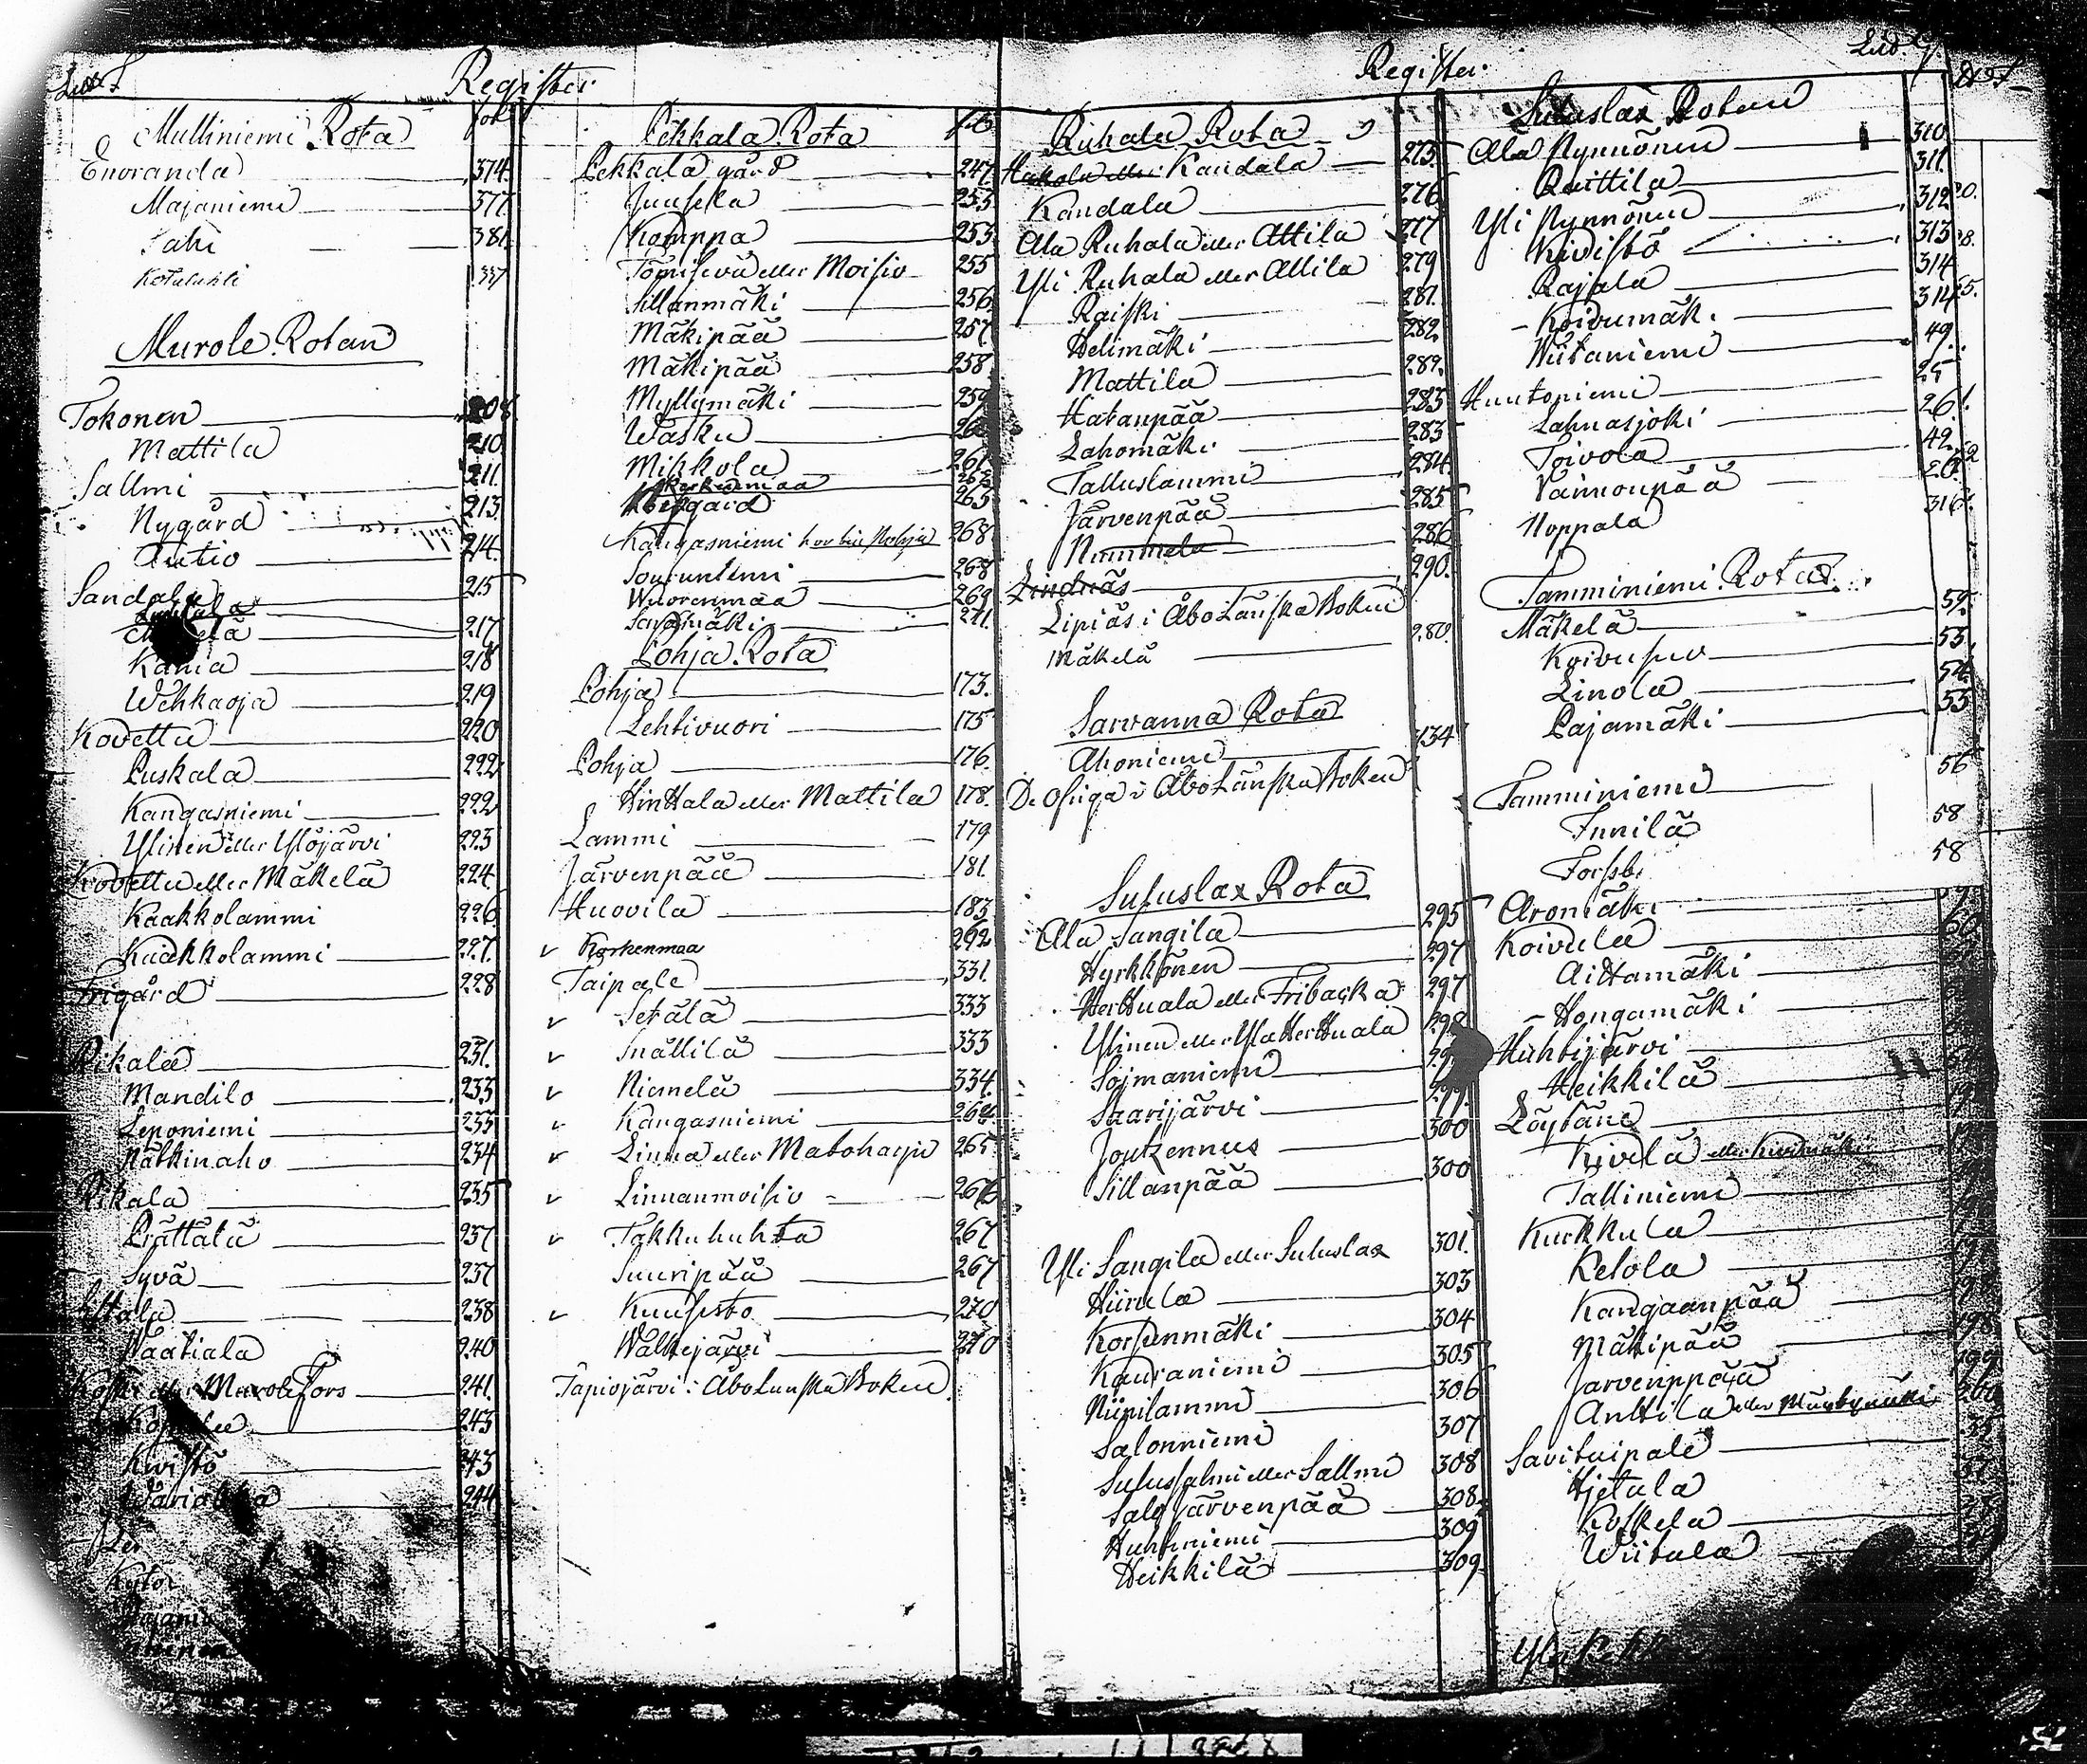 Register
Mulliniemi Rota
Enoranda 374.
Majaniemi 377.
Lahi 381.
Kotaluhti 337
Murole Rotan
Tokonen 208
Mattila 210
Sallmi 211.
Nygård 213.
Autio 214.
Sandala 215
217
Kania 218
Wehkaoja 219
Kovettu 220
Puskala 222
Kangasniemi 222
Ylinen eller Ylöjärvi 223
Kovettu eller Mäkelä 224
Kaakkolammi 226
Kaakkolammi 227.
Frigård 228
Pikala 231.
Mandilo 233
Leponiemi 233
Nätkinaho 234
Pikala 235
Prättälä 237
Syvä 237
238
Waatiala 240
eller Murole Fors 241.
243
Kivistö 243
244
Pekkala Rota
Pekkala gård 247
Juusela 253
Komppa 253
Tomiseva eller Moisio 255
Sillanmäki 256
Mäkipää 257
Mäkipää 258
Myllymäki 259
Wasku 260
Mikkola 261
Korkenmaa
265
Kangasniemi 268
Soukuniemi 268
Wuorenmaa 269
Saramäki 271.
Pohja Rota
Pohja 173.
Lehtivuori 175
Pohja 176.
Hinttala eller Mattila 178.
Lammi 179
Järvenpää 181
Huovila 183
Korkenmaa 292
Taipale 331.
Setälä 333
Snällilä 333
Niemelä 334.
Kangasniemi 264
Linna eller Matoharju 265
Linnanmoisio 266
Takkuhuhta 267
Suuripää 267
Kuusisto 270
Wälkejärvi 270
Tapiojärvi i Åbo Länska Boken
Register
Ruhala Rota
Hakola eller Kandala 275
Kandala 276
Ala Ruhala eller Attila 277
Yli Ruhala eller Attila 279
Raiski 281.
Helimäki 282.
Mattila 282.
Hatanpää 283
Lahomäki 283
Talluslammi 284
Järvenpää 285
Nimmela 286
Lindnäs 290.
Lipiäs i Åbo Länska Boken
Mäkelä 280.
Sarvanna Rota
Ahoniemi 134
De ofriga i Åbo Länska Boken
Suluslax Rota
Ala Sangila 295
Hyrkkönen 297
Herttuala eller Fribacka 297
Ylinen eller Yla Herttuala 298
Sojmaniemi
Saarijärvi
Joutzennus 300
Sillanpää 300
Yli Sangila eller Suluslax 301.
Hiirula 303
Korpenmäki 304
Kauraniemi 305
Niinilammi 306
Salonniemi 307
Sulussalmi eller Sallmi 308
Salo Järvenpää 308
Huhtiniemi 309
Heikkilä 309
Suluslax Rotan
Ala Nynnönen 310
Raittila 311.
Yli Nynnönen 312
Kivistö 313
Rajala 314
Koivumäki 314
Wiitaniemi 49.
Huutoniemi 25
Lahnasjoki 26
Toivola 42
Vainionpää 26
Noppala 316
Tamminiemi Rotan
Mäkelä 52.
Koivusuo 53
Linola 54.
Pajamäki 55
Tamminiemi 56
Innilä 58
Forssb. 58
Aromäki
Koivula 60
Aittamäki
Hongamäki
Huhtijärvi
Heikkilä
Löytäne
Kivelä
Talliniemi
Kurkkula
Ketola
Kangaanpää
Mäkipää
Jarvenppää
Anttila eller
Savitaipale
Hjetala
Koskela
Wiitala